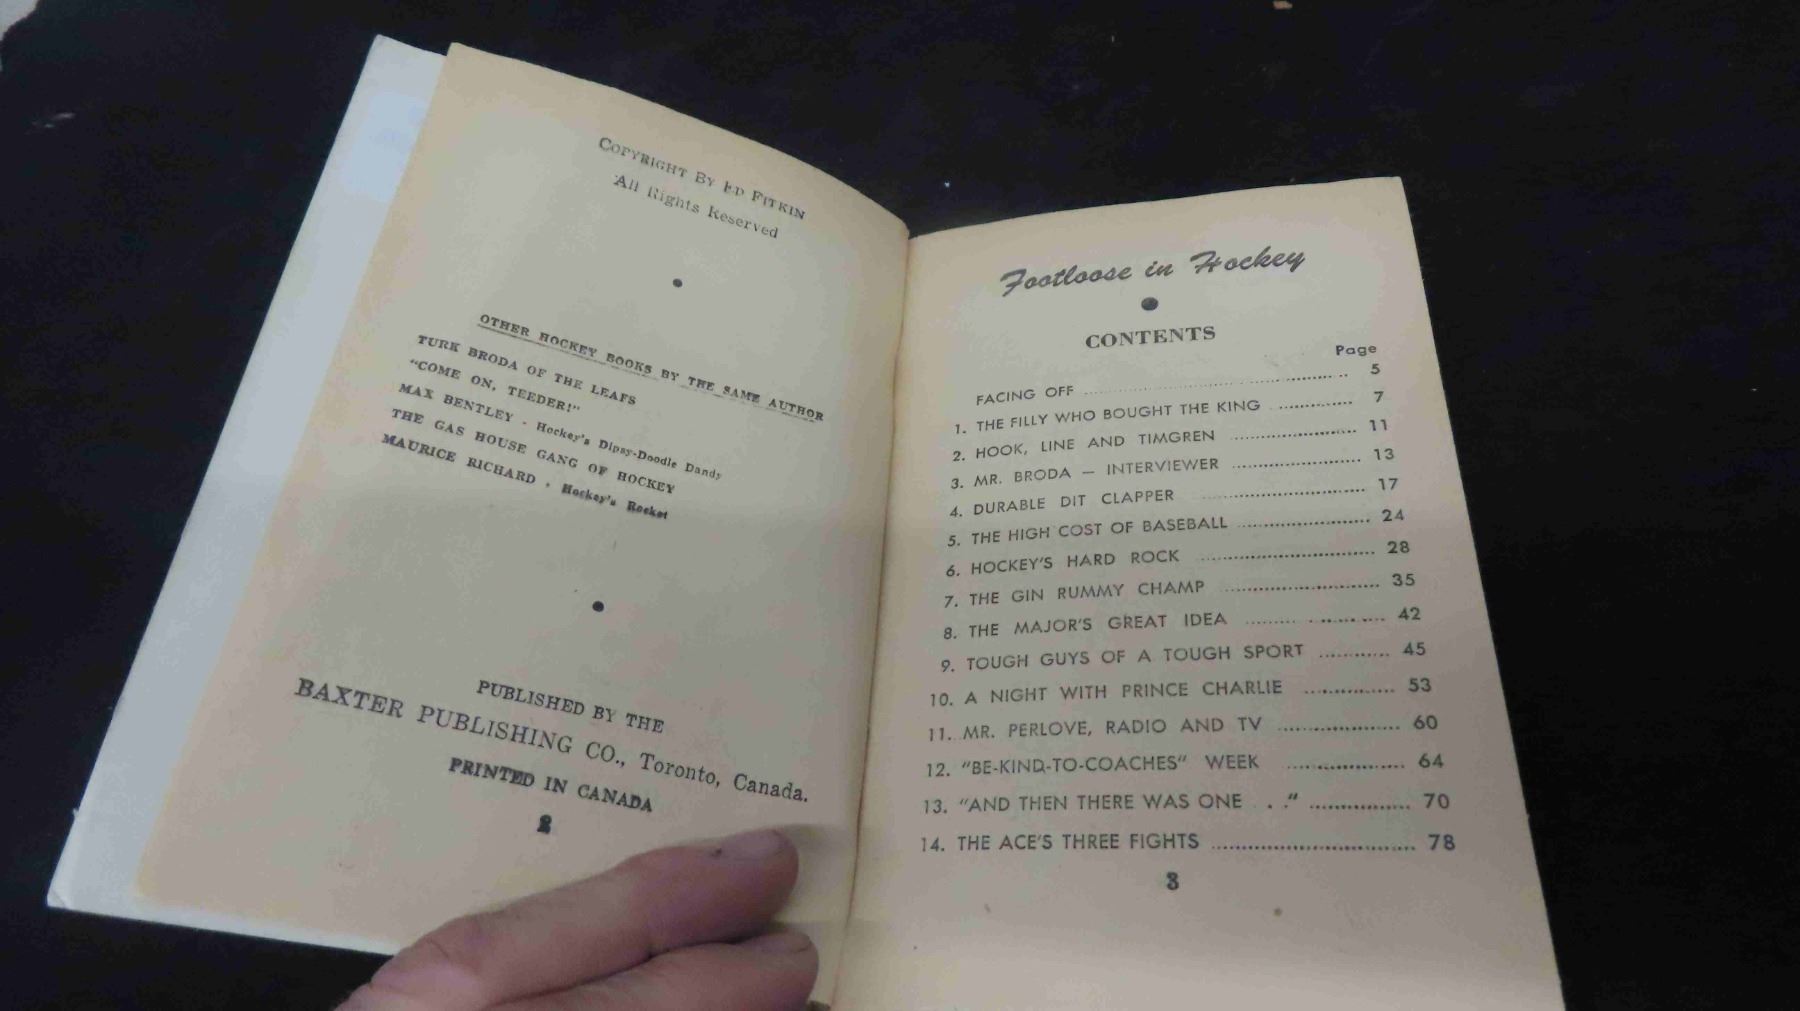 COPYRIGHT BY ED FITKIN
All Rights Reserved
OTHER HOCKEY BOOKS BY THE SAME AUTHOR
TURK BRODA OF THE LEAFS
"COME ON, TEEDER!"
MAX BENTLEY - Hockey's Dipsy-Doodle Dandy
THE GAS HOUSE GANG OF HOCKEY
MAURICE RICHARD - Hockey's Rocket
PUBLISHED BY THE
BAXTER PUBLISHING CO., Toronto, Canada.
PRINTED IN CANADA
2
Footloose in Hockey
CONTENTS
Page
FACING OFF .......... 5
1. THE FILLY WHO BOUGHT THE KING .......... 7
2. HOOK, LINE AND TIMGREN .......... 11
3. MR. BRODA — INTERVIEWER .......... 13
4. DURABLE DIT CLAPPER .......... 17
5. THE HIGH COST OF BASEBALL .......... 24
6. HOCKEY'S HARD ROCK .......... 28
7. THE GIN RUMMY CHAMP .......... 35
8. THE MAJOR'S GREAT IDEA .......... 42
9. TOUGH GUYS OF A TOUGH SPORT .......... 45
10. A NIGHT WITH PRINCE CHARLIE .......... 53
11. MR. PERLOVE, RADIO AND TV .......... 60
12. "BE-KIND-TO-COACHES" WEEK .......... 64
13. "AND THEN THERE WAS ONE . ." .......... 70
14. THE ACE'S THREE FIGHTS .......... 78
3